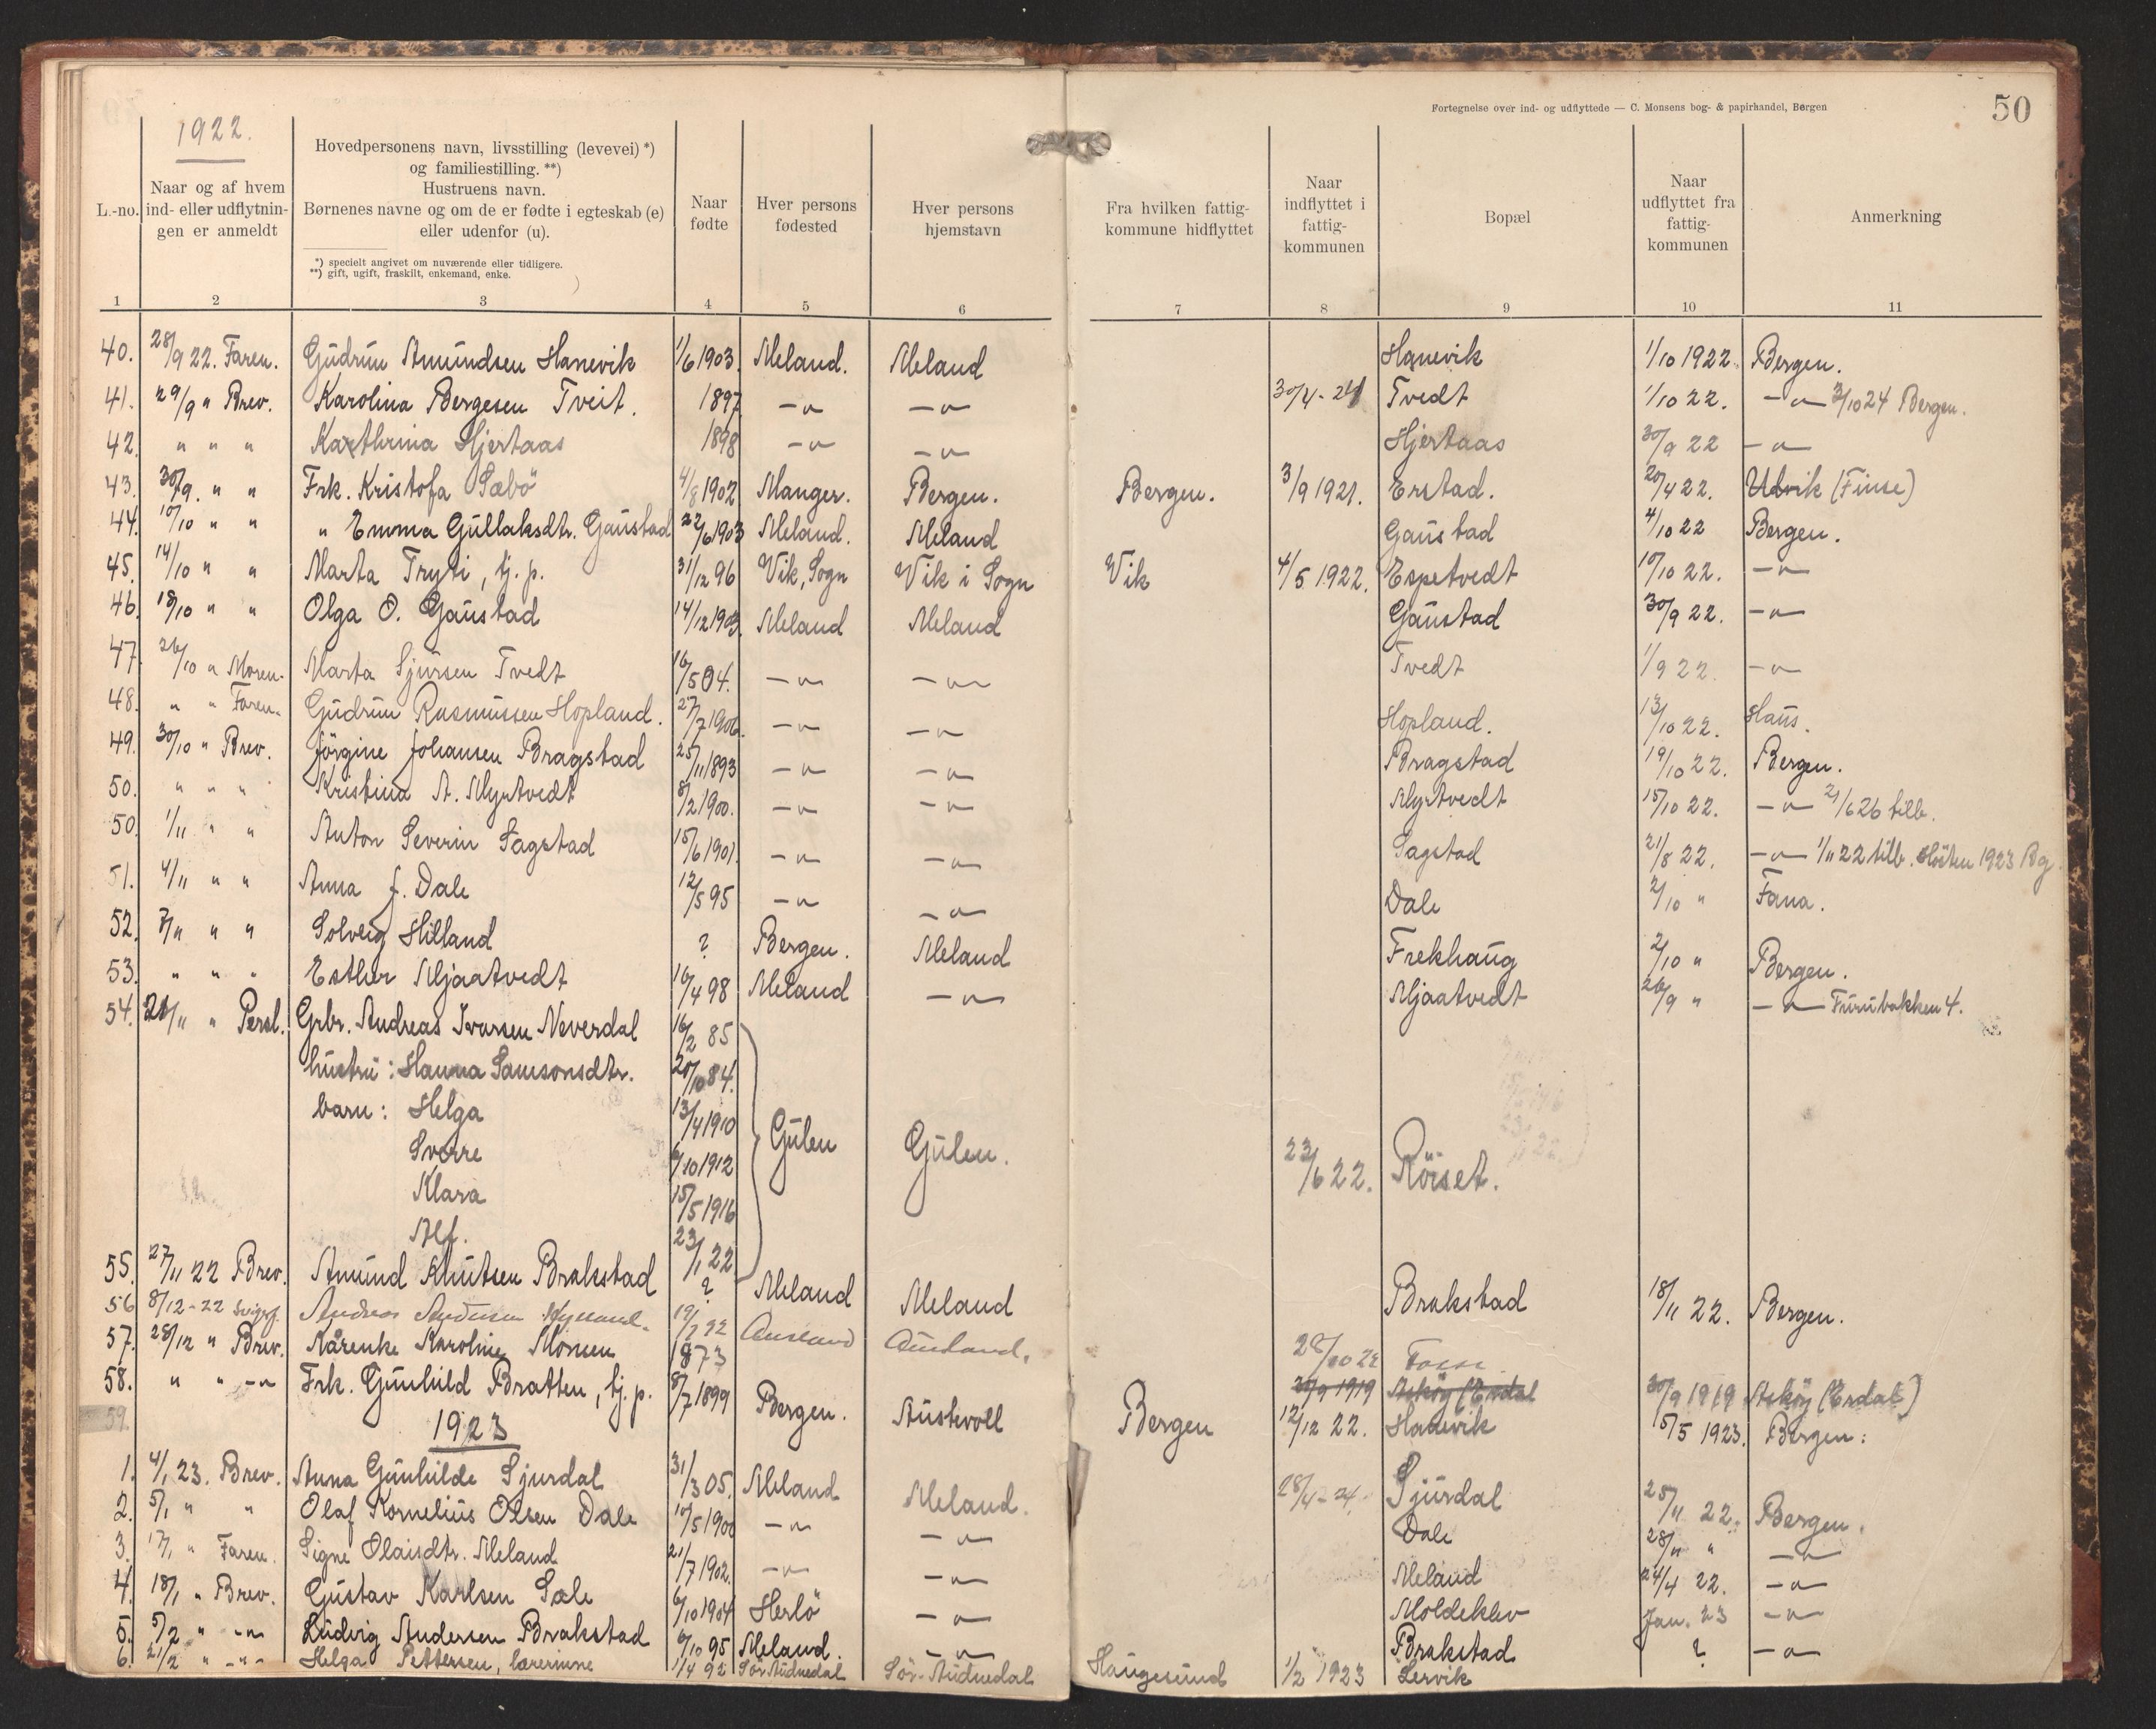 Fortegnelse over ind- og udflyttede — C. Monsens bog- & papirhandel, Bergen
50
1922.
L.-no.
Naar og af hvem ind- eller udflytnin- gen er anmeldt
Hovedpersonens navn, livsstilling (levevei) *) og familiestilling. **) Hustruens navn. Børnenes navne og om de er fødte i egteskab (e) eller udenfor (u).
*) specielt angivet om nuværende eller tidligere.
**) gift, ugift, fraskilt, enkemand, enke.
Naar fødte
Hver persons fødested
Hver persons hjemstavn
Fra hvilken fattig- kommune hidflyttet
Naar indflyttet i fattig- kommunen
Bopæl
Naar udflyttet fra fattig- kommunen
Anmerkning
1 2 3 4 5 6 7 8 9 10 11
40. 28/9 22. Faren. Gudrun Amundsen Hanevik 1/6 1903. Meland. Meland Hanevik 1/10 1922. Bergen.
41. 29/9 " Brev. Karolina Bergesen Tveit. 1897 —"— —"— 30/4-24 Tvedt 1/10 22. —"— 3/10 24 Bergen.
42. " " " Kathrina Hjertaas 1898 —"— —"— Hjertaas 30/9 22 —"—
43. 30/9. " " Frk. Kristofa Sæbö 4/8 1902 Manger. Bergen. Bergen. 3/9 1921. Erstad. 20/4 22. Ulvik (Finse)
44. 10/10 " " " Emma Gullaksdtr. Gaustad 22/6 1903 Meland. Meland Gaustad 4/10 22 Bergen.
45. 14/10 " " Marta Tryti, tj. p. 31/12 96 Vik, Sogn Vik i Sogn Vik 4/5 1922. Espetvedt 10/10 22. —"—
46. 18/10 " " Olga O. Gaustad 14/12 1903. Meland Meland Gaustad 30/9 22. —"—
47. 26/10 " Moren. Marta Sjursen Tvedt 16/5 04. —"— —"— Tvedt 1/9 22. —"—
48. " " Faren. Gudrun Rasmussen Hopland. 27/7 1906. —"— —"— Hopland. 13/10 22. Haus.
49. 30/10 " Brev. Jörgine Johansen Bragstad 25/11 1893 —"— —"— Bragstad 19/10 22. Bergen.
50. " " " Kristina A. Myrtvedt 8/2 1900. —"— —"— Myrtvedt 15/10 22. —"— 21/6 26 tilb.
50. 1/11 " " Anton Severin Sagstad 15/6 1901. —"— —"— Sagstad 21/8 22. —"— 1/11 22 tilb. Hösten 1923 Bg.
51. 4/11 " " Anna J. Dale 12/5 95 —"— —"— Dale 2/10 " Fana.
52. 7/11 " " Solveig Hilland ? Bergen. Meland Frekhaug 2/10 " Bergen.
53. " " " Esther Mjaatvedt 16/4 98 Meland —"— Mjaatvedt 26/9 " —"— Furubakken 4.
54. 21/11 " Persl. Grbr. Andreas Ivarsen Neverdal 16/2 85
hustru: Hanna Samsonsdtr. 20/10 84.
barn: Helga 13/4 1910
Sverre 6/10 1912 Gulen Gulen. 23/6 22. Röiset.
Klara 15/5 1916
Alf. 23/1 22
55. 27/11 22 Brev. Amund Knutsen Brakstad ? Meland Meland Brakstad 18/11 22. Bergen.
56 8/12-22 Andreas Andersen 19/7 92 28/10 22
57. 28/12 " Brev. Kårenke Karoline Monsen 1873 30/9 1919 Askøy (Erdal 30/9 1919 Askøy (Erdal)
58. " " —"— Frk. Gunhild Bratten, tj. p. 8/7 1899 Bergen. Austevoll Bergen 12/12 22. Hanevik 15/5 1923. Bergen.
59.
1923
1. 4/1 23. Brev. Anna Gunhilde Sjurdal 31/3 05. Meland Meland. 28/4-24. Sjurdal 25/11 22. Bergen.
2. 5/1 " " Olaf Kornelius Olsen Dale 10/5 1900 —"— —"— Dale 28/11 " —"—
3. 17/1 " Faren. Signe Olaisdtr. Meland 21/7 1902. —"— —"— Meland 24/4 22. —"—
4. 18/1 " Brev. Gustav Karlsen Sæle 6/10 1904 Herlö —"— Moldeklev Jan. 23 —"—
5. 5/2 " —"— Ludvig Andersen Brakstad 6/10 95 Meland. —"— Brakstad ? —"—
6. 21/2 " —"— Helga Pettersen, lærerinne 1/4 92 Sör-Audnedal Sör-Audnedal Haugesund 1/2 1923 Lervik